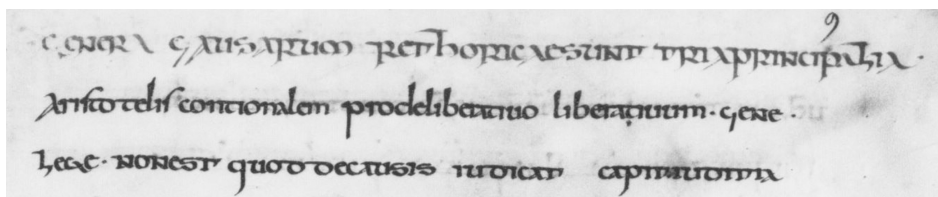 GENERA CAUSARUM RETHORICAE SUNT TRIA PRINCIPALIA .
Aristotelis contionalem pro deliberatiuo liberatiuum . gene .
lege . NON EST quod de causis iudicat